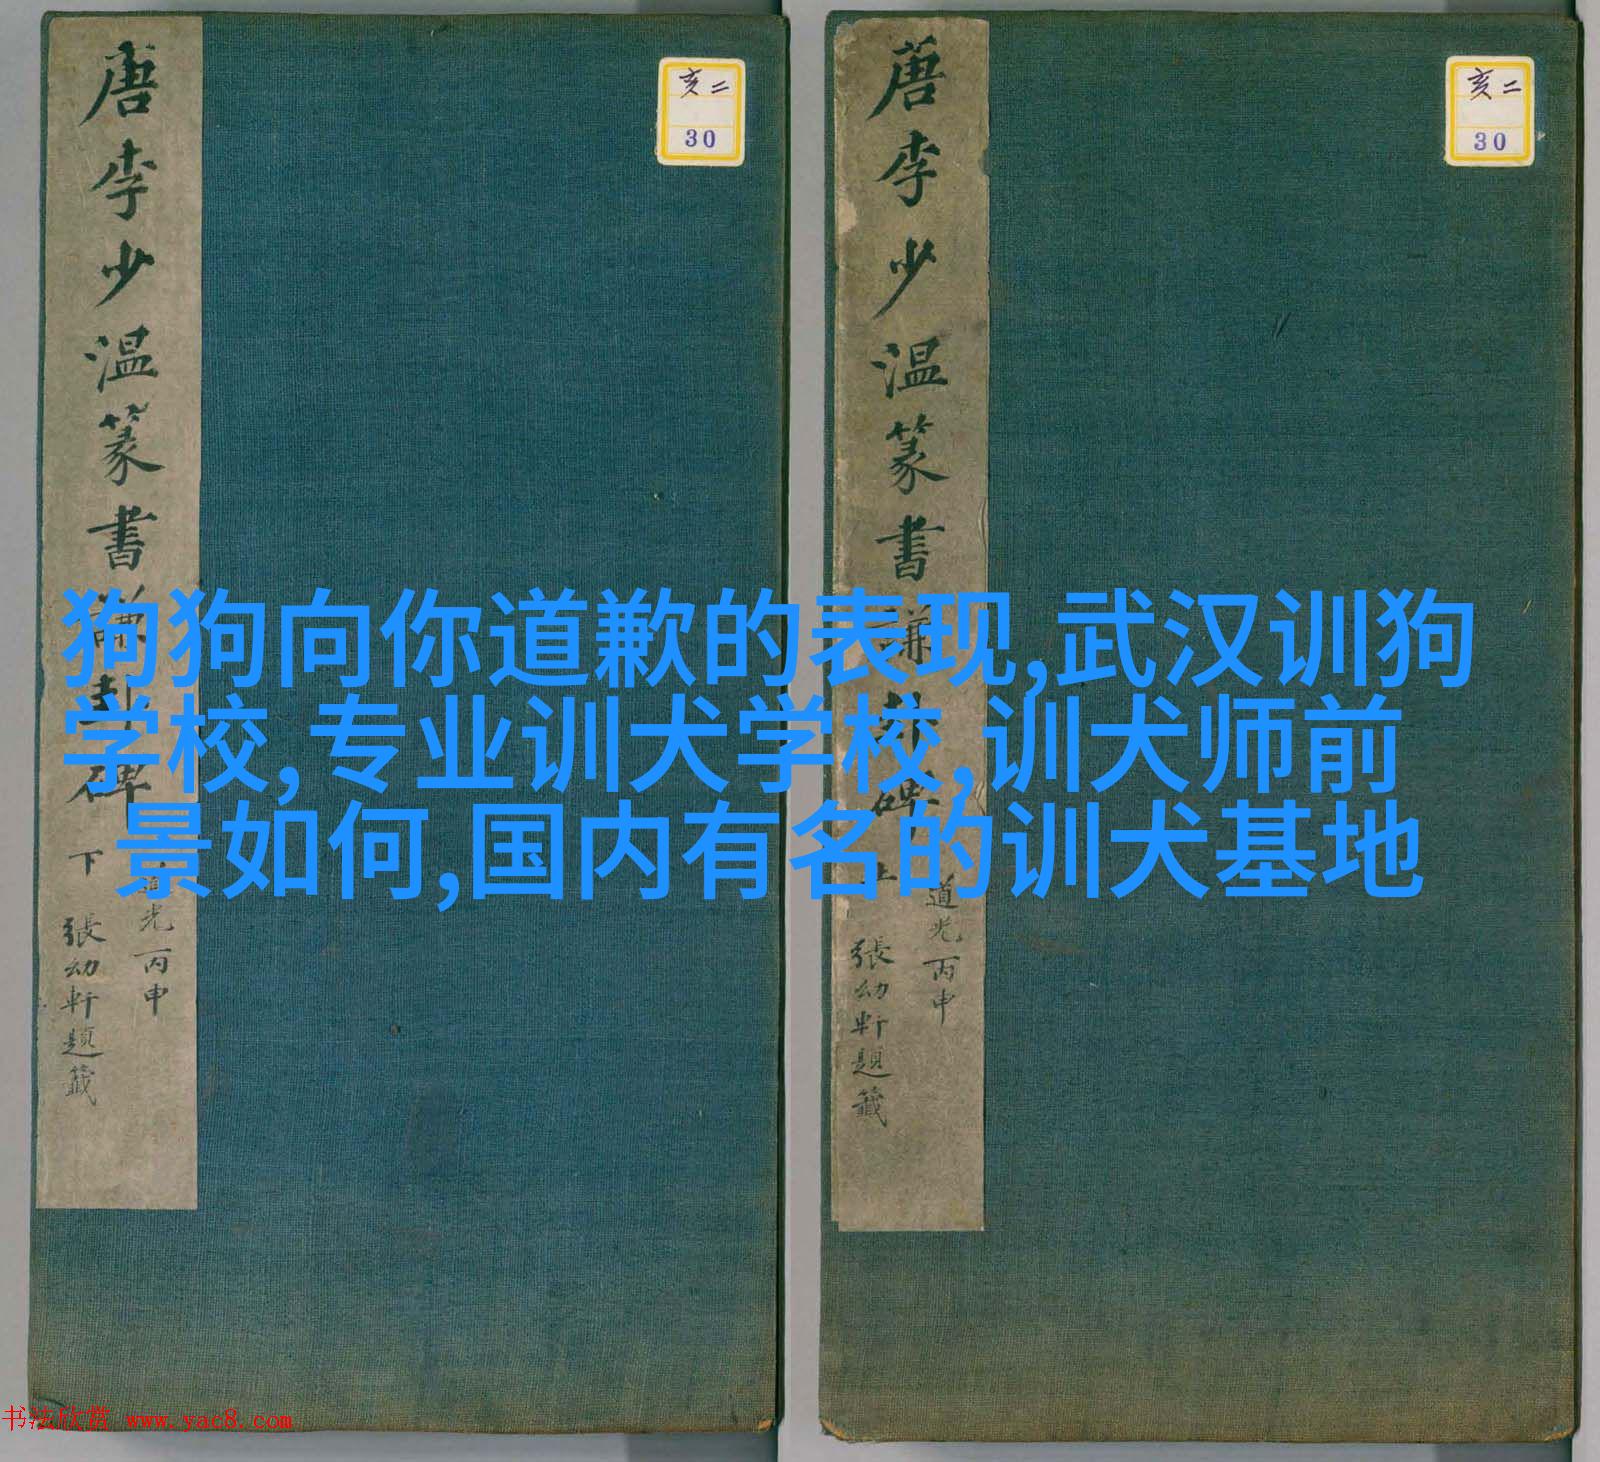 唐李少温篆書謙卦碑 下
道光丙申
張幼軒題籤
亥二
30
唐李少温篆書謙卦碑 上
道光丙申
張幼軒題籤
亥二
30
狗狗向你道歉的表现,武汉训狗
学校,专业训犬学校,训犬师前
景如何,国内有名的训犬基地
书法欣赏 www.yac8.com